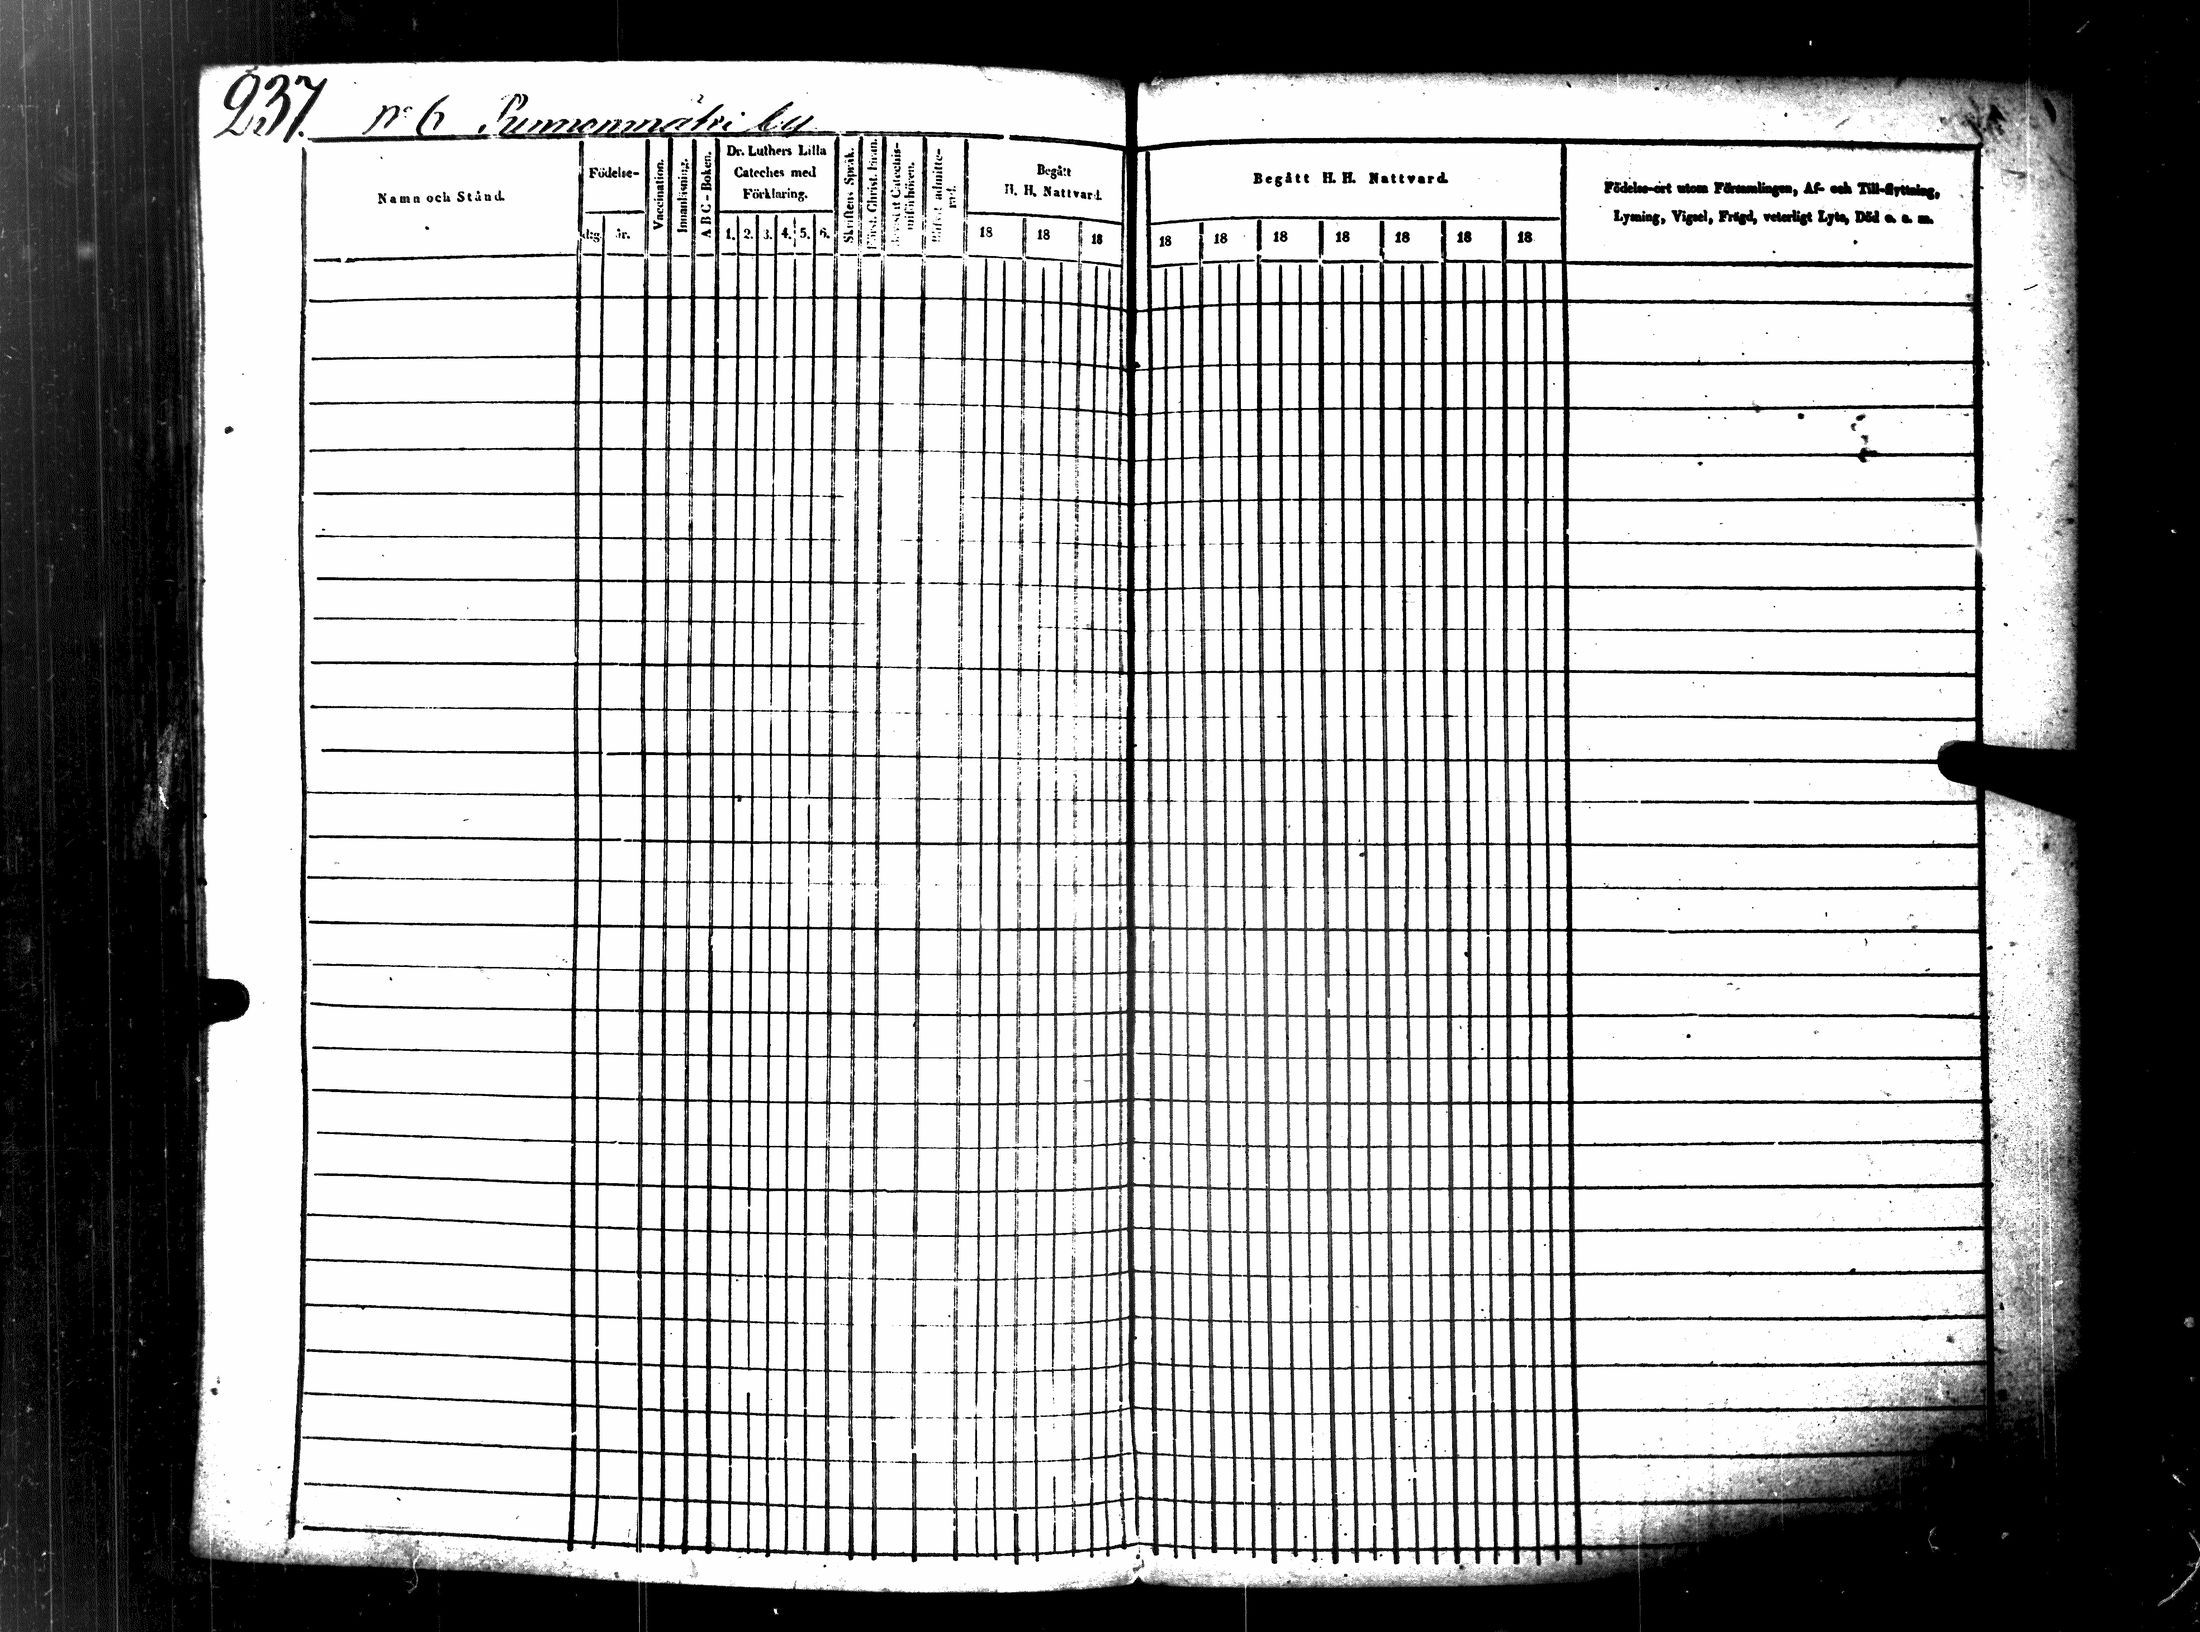 237. No 6 Punnonmäki by
Namn och Stånd.
Födelse-
dag. år.
Vaccination.
Innanläsning.
A B C - Boken.
Dr. Luthers Lilla
Cateches med
Förklaring.
1. 2. 3. 4. 5. 6.
Skriftens Språk.
Begått
H. H. Nattvard.
18 18 18
Begått H. H. Nattvard.
18 18 18 18 18 18 18
Födelse-ort utom Församlingen, Af- och Till-flyttning,
Lysning, Vigsel, Frägd, veterligt Lyte, Död o. s. m.